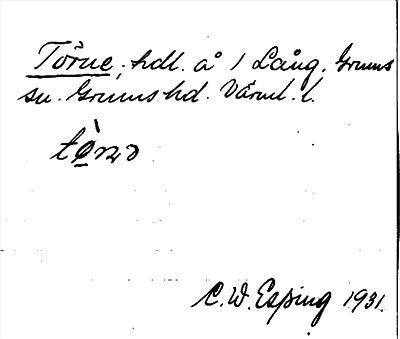 Törne, hdl. å 1 Lång. Grums
sn. Grums hd. Värml. l.
C. W. Esping 1931.